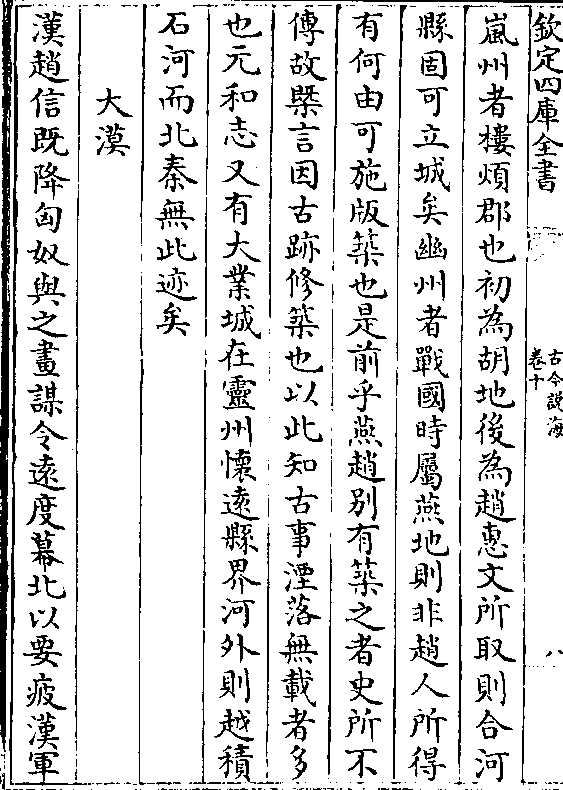 欽定四庫全書
古今説海
卷十
八
嵐州者樓煩郡也初為胡地後為趙惠文所取則合河
縣固可立城矣幽州者戰國時屬燕地則非趙人所得
有何由可施版築也是前乎燕趙别有築之者史所不
傳故槩言因古跡修築也以此知古事湮落無載者多
也元和志又有大業城在靈州懷遠縣界河外則越積
石河而北秦無此迹矣
大漠
漢趙信既降匈奴與之畫謀令遠度幕北以要疲漢軍